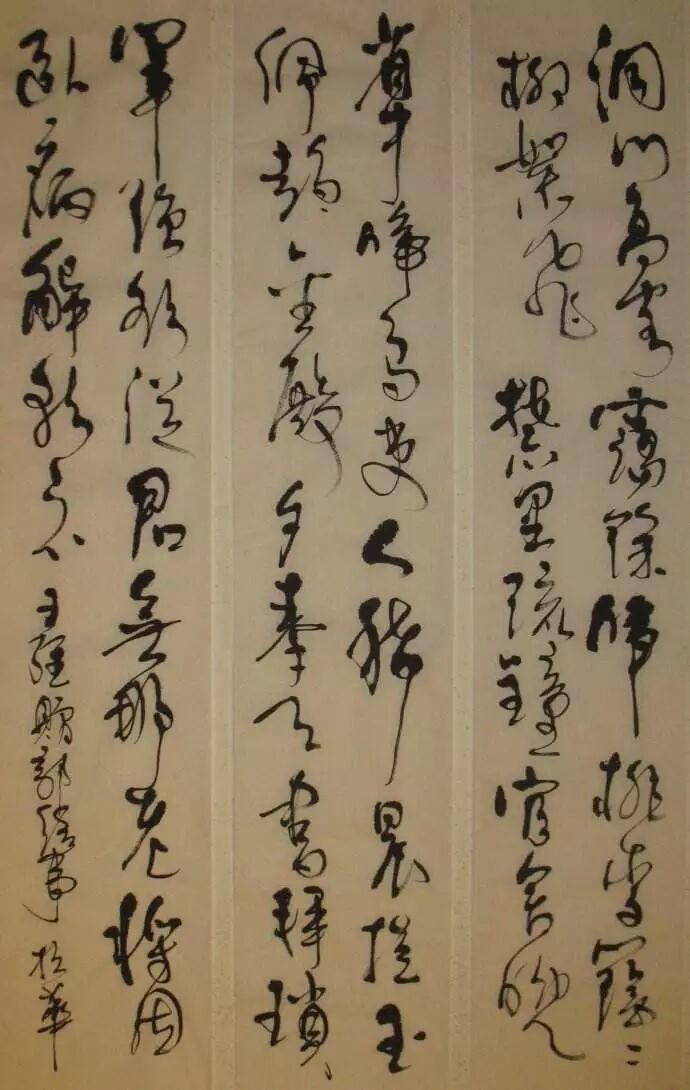 洞門高閣靄餘暉桃李陰〻
柳絮飛禁里疏鐘官舍晚
省中啼鳥吏人稀晨搖玉
佩趨金殿夕奉天書拜瑣
闈強欲從君無那老將因
臥病解朝衣 王維贈郭給事